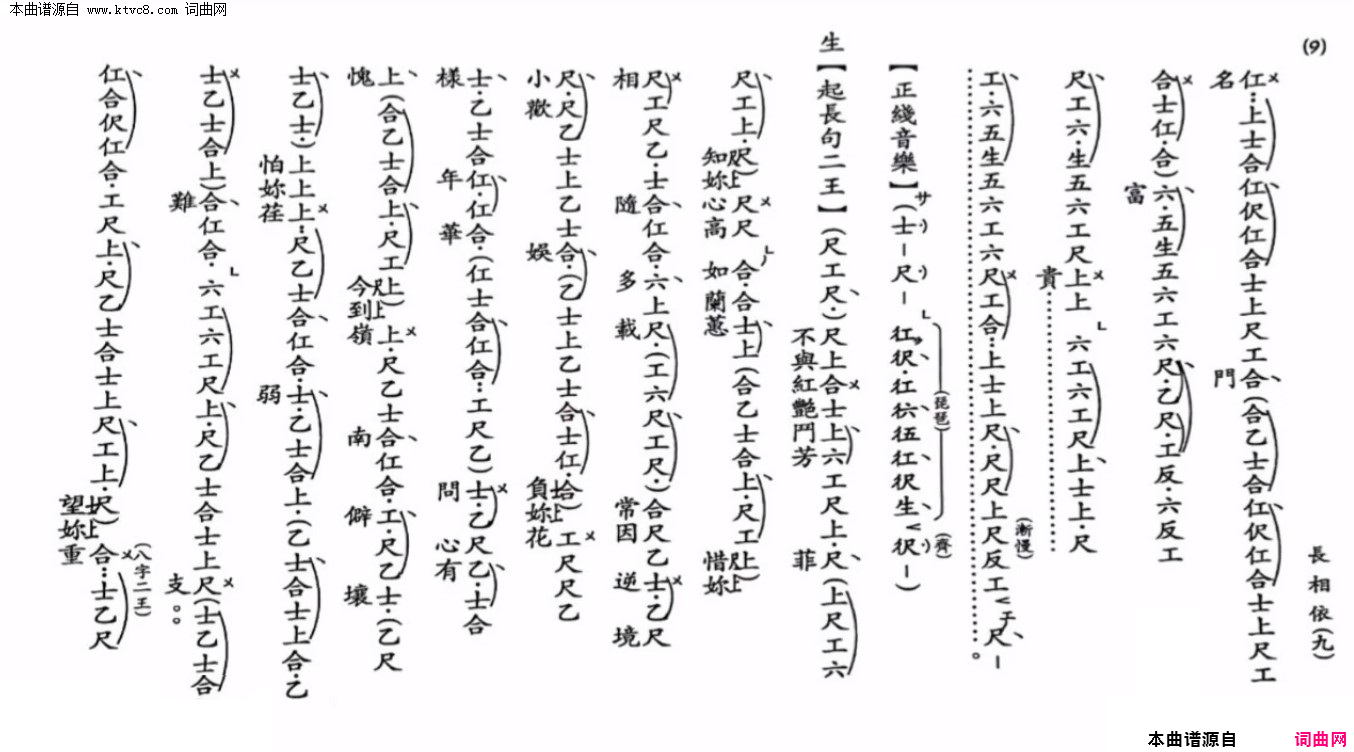 本曲谱源自 www.ktvc8.com 词曲网
(9)
長相依(九)
仜：上士合仜伬仜合士上尺工合(合乙士合仜伬仜合士上尺工
名 門
合士仜·合)六·五生五六工六尺·乙尺·工反·六反工
富
尺工六·生五六工尺上上 六工六工尺上士上·尺
貴
工·六五生五六工六尺工合·上士上尺·尺尺上尺反工 尺－
(漸慢)
【正綫音樂】(士－尺－
(琵琶)
(齊)
生【起長句二王】(尺工尺·)尺上合士上六工尺上·尺(上尺工六
不與紅艷鬥芳菲
尺工上·尺)尺尺合·合士上(合乙士合上·尺工上)
知妳心高如蘭蕙 惜妳
尺工尺乙·士合仜合·六上尺·(工六尺工尺·)合尺乙士·乙尺
相隨多載 常因逆境
尺·尺乙士上乙士合·(乙士上乙士合士仜·合)工尺尺乙
小歡娛 負妳花
士·乙士合仜·仜合·(仜士合仜合：工尺乙)士·乙尺乙·士合
樣年華 問心有
上(合乙士合上·尺工上)上·尺乙士合仜合·工·尺乙士·(乙尺
愧 今到嶺南僻壤
士乙士·)上上上·尺乙士合仜合·士·乙士合上·(乙士合士上合·乙
怕妳荏弱
士乙士合上)合仜合·六工六工尺上·尺乙士合士上尺(士乙士合
難支。。
仜合伬仜合·工尺上·尺乙士合士上尺工上·尺)合：士乙尺
望妳重
(八字二王)
本曲谱源自 词曲网